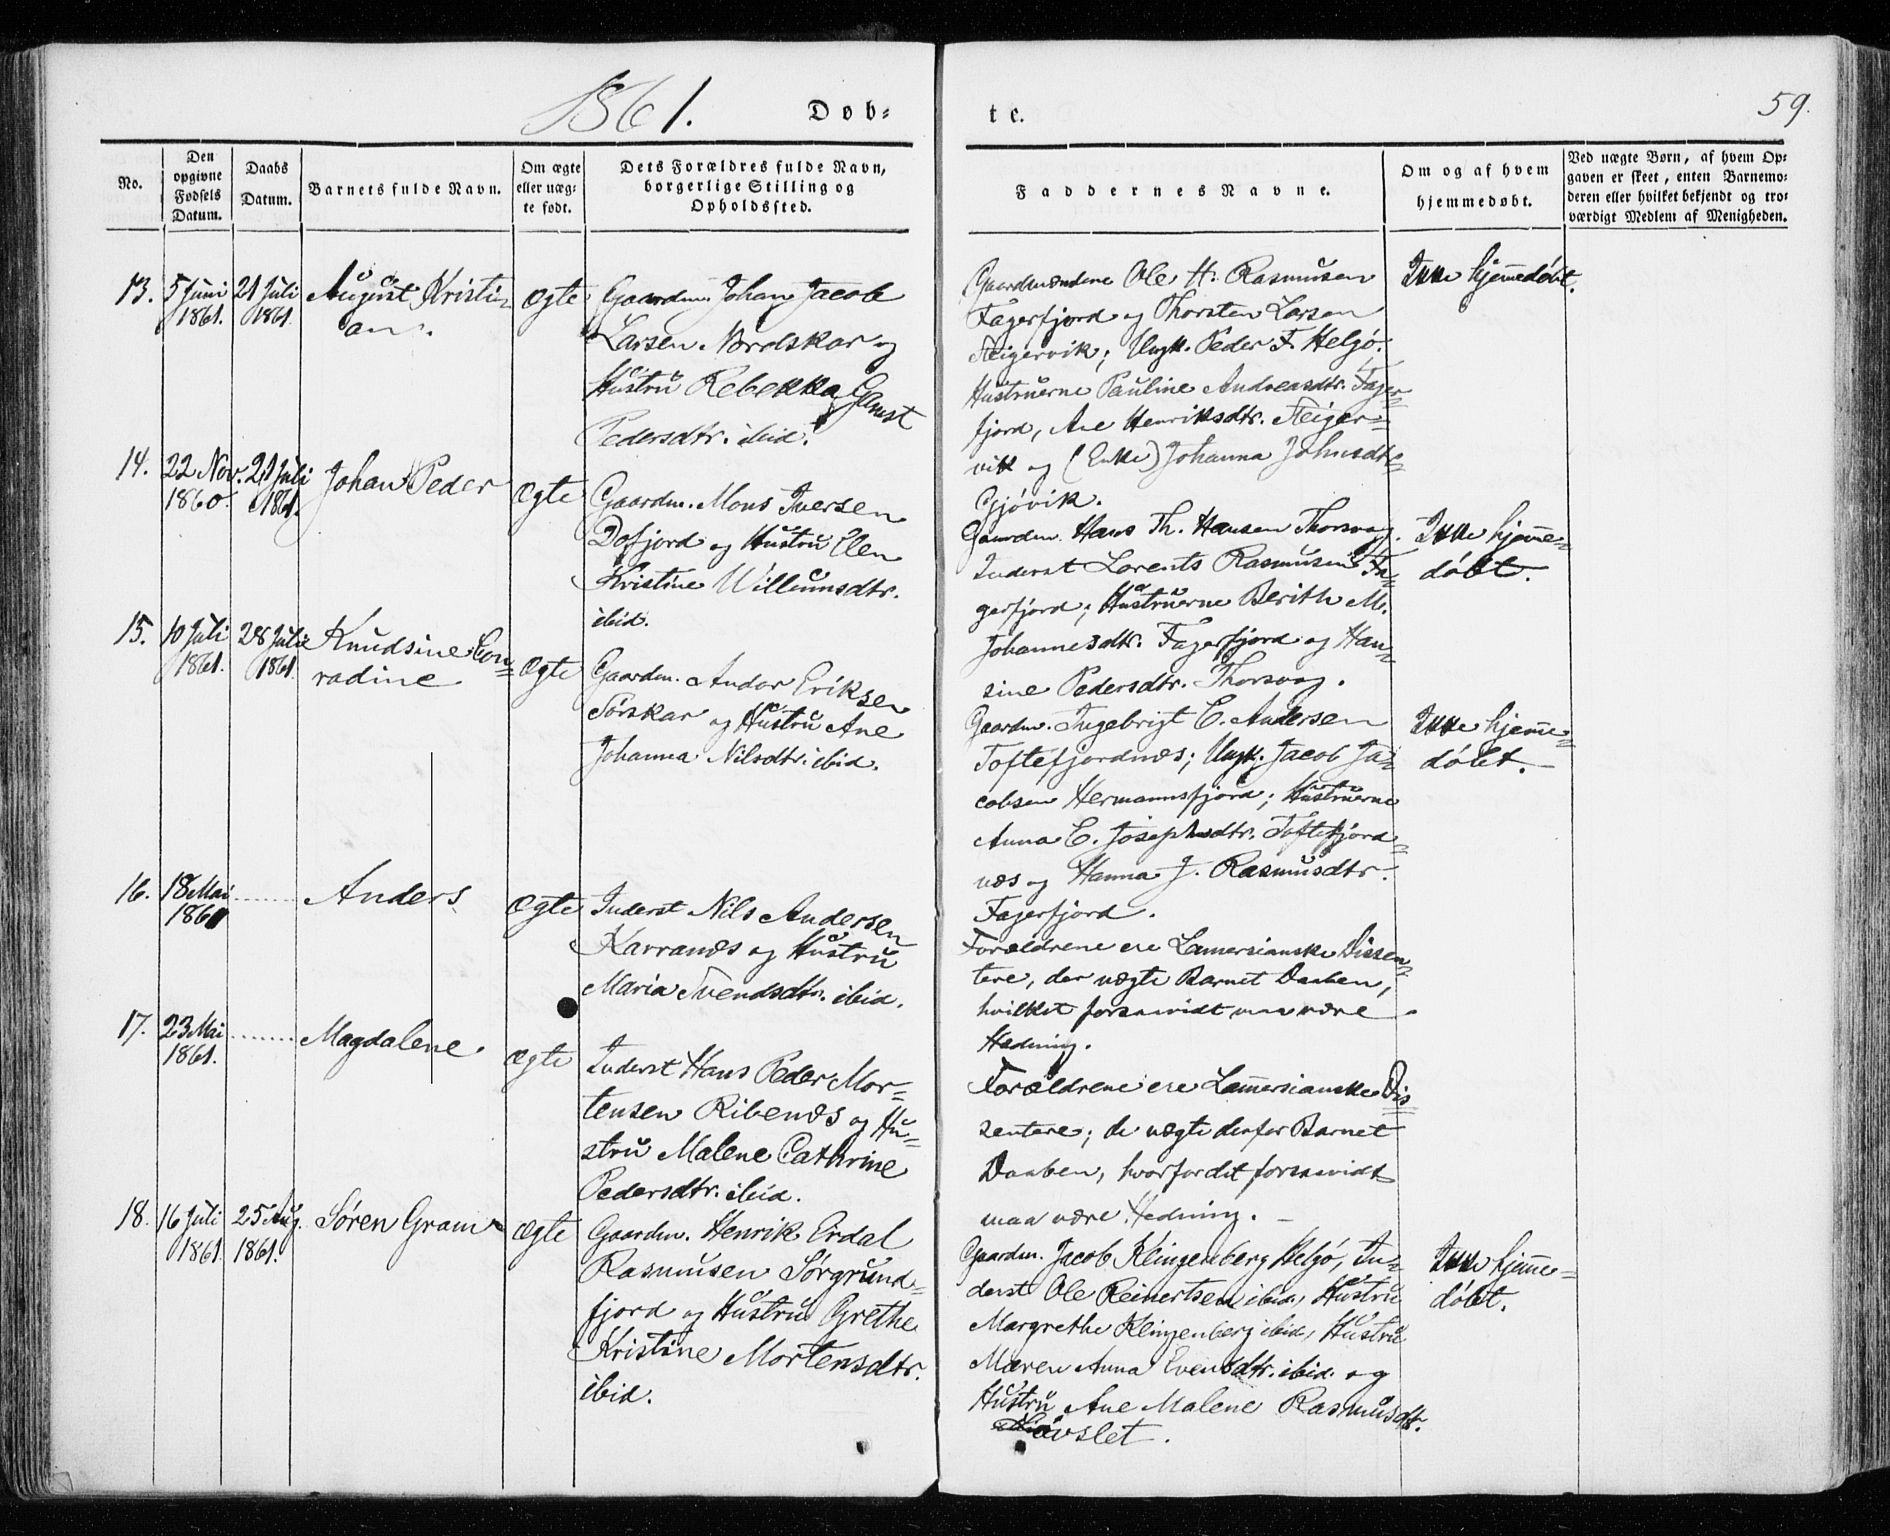 1861.
Døb-
te.
59.
No.
Den
opgivne
Fødsels
Datum.
Daabs
Datum.
Barnets fulde Navn.
Om ægte
eller uæg-
te født.
Dets Forældres fulde Navn,
borgerlige Stilling og
Opholdssted.
Faddernes Navne.
Om og af hvem
hjemmedøbt.
Ved uægte Børn, af hvem Op-
gaven er skeet, enten Barnemo-
deren eller hvilket bekjendt og tro-
værdigt Medlem af Menigheden.
13.
5 Juni
1861.
21 Juli
1861.
August Kristi-
an.
Ægte
Gaardm. Johan Jacob
Larsen Nordskar og
Hustru Rebekka Gamst
Pedersdtr. ibid.
Gaardmændene Ole H. Rasmusen
Fagerfjord og Thorsten Larsen
Reigervik; Ungk. Peder F. Helgø.
Hustruerne Pauline Andreasdtr. Fager-
fjord, Ane Henriksdtr. Reiger-
vik og (Enke) Johanna Johnsdtr.
Gjøvik.
Ikke hjemmedøbt.
14.
22 Nov.
1860.
21 Juli
1861.
Johan Peder
Ægte
Gaardm. Mons Iversen
Dafjord og Hustru Elen
Kristine Willumsdtr.
ibid.
Gaardm. Hans Th. Hansen Thorsvag.
Inderst Lorents Rasmusen Fa-
gerfjord; Hustruerne Berith M.
Johannesdtr. Fagerfjord og Han-
sine Pedersdtr. Thorsvag.
Ikke hjemme-
døbt.
15.
10 Juli
1861.
28 Juli
1861.
Knudsine Con-
radine
Ægte
Gaardm. Andor Eriksen
Sørskar og Hustru Ane
Johanna Nilsdtr. ibid.
Gaardm. Ingebrigt E. Andersen
Toftefjordnæs; Ungk. Jacob Ja-
cobsen Hermannsfjord; Hustruerne
Anna E. Josephsdtr. Toftefjord-
næs og Hanna J. Rasmusdtr.
Fagerfjord.
Ikke hjemme-
døbt.
16.
18 Mai
1861
Anders
Ægte
Inderst Nils Andersen
Karranæs og Hustru
Maria Svendsdtr. ibid.
Forældrene ere Lamersianske Dissen-
tere, der nægte Barnet Daaben,
hvilket forsaavidt maa være
Hedning.
17.
23 Mai
1861.
Magdalene
Ægte
Inderst Hans Peder Mor-
tensen Ribenæs og Hu-
stru Malene Cathrine
Pedersdtr. ibid.
Forældrene ere Lammersianske Dis
sentere; de nægte derfor Barnet
Daaben, hvorfor det forsaavidt
maa være Hedning.
18.
16 Juli
1861.
25 Aug.
1861.
Søren Gram
Ægte
Gaardm. Henrik Erdal
Rasmusen Sørgrund-
fjord og Hustru Grethe
Kristine Mortensdtr.
ibid.
Gaardm. Jacob Klingenberg Helgø, In-
derst Ole Reinertsen ibid, Hustru
Margrethe Klingenberg ibid, Hustru
Maren Anna Evensdtr. ibid. og
Hustru Ane Malene Rasmusdtr.
Havslet.
Ikke hjemme-
døbt.